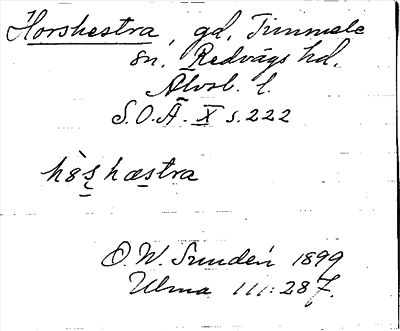 Horshestra, gd, Timmele
sn, Redvägs hd,
Älvsb. l.
S.O.Ä. X s. 222
hæstra
O.W. Sundén 1899
Ulma 111:287.